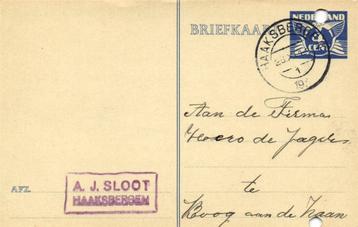 BRIEFKAA
NEDERLAND
CENT
HAAKSBERGEN
1
19
Aan de Firma
de
te
Koog aan de Zaan
AFZ.
A. J. SLOOT
HAAKSBERGEN